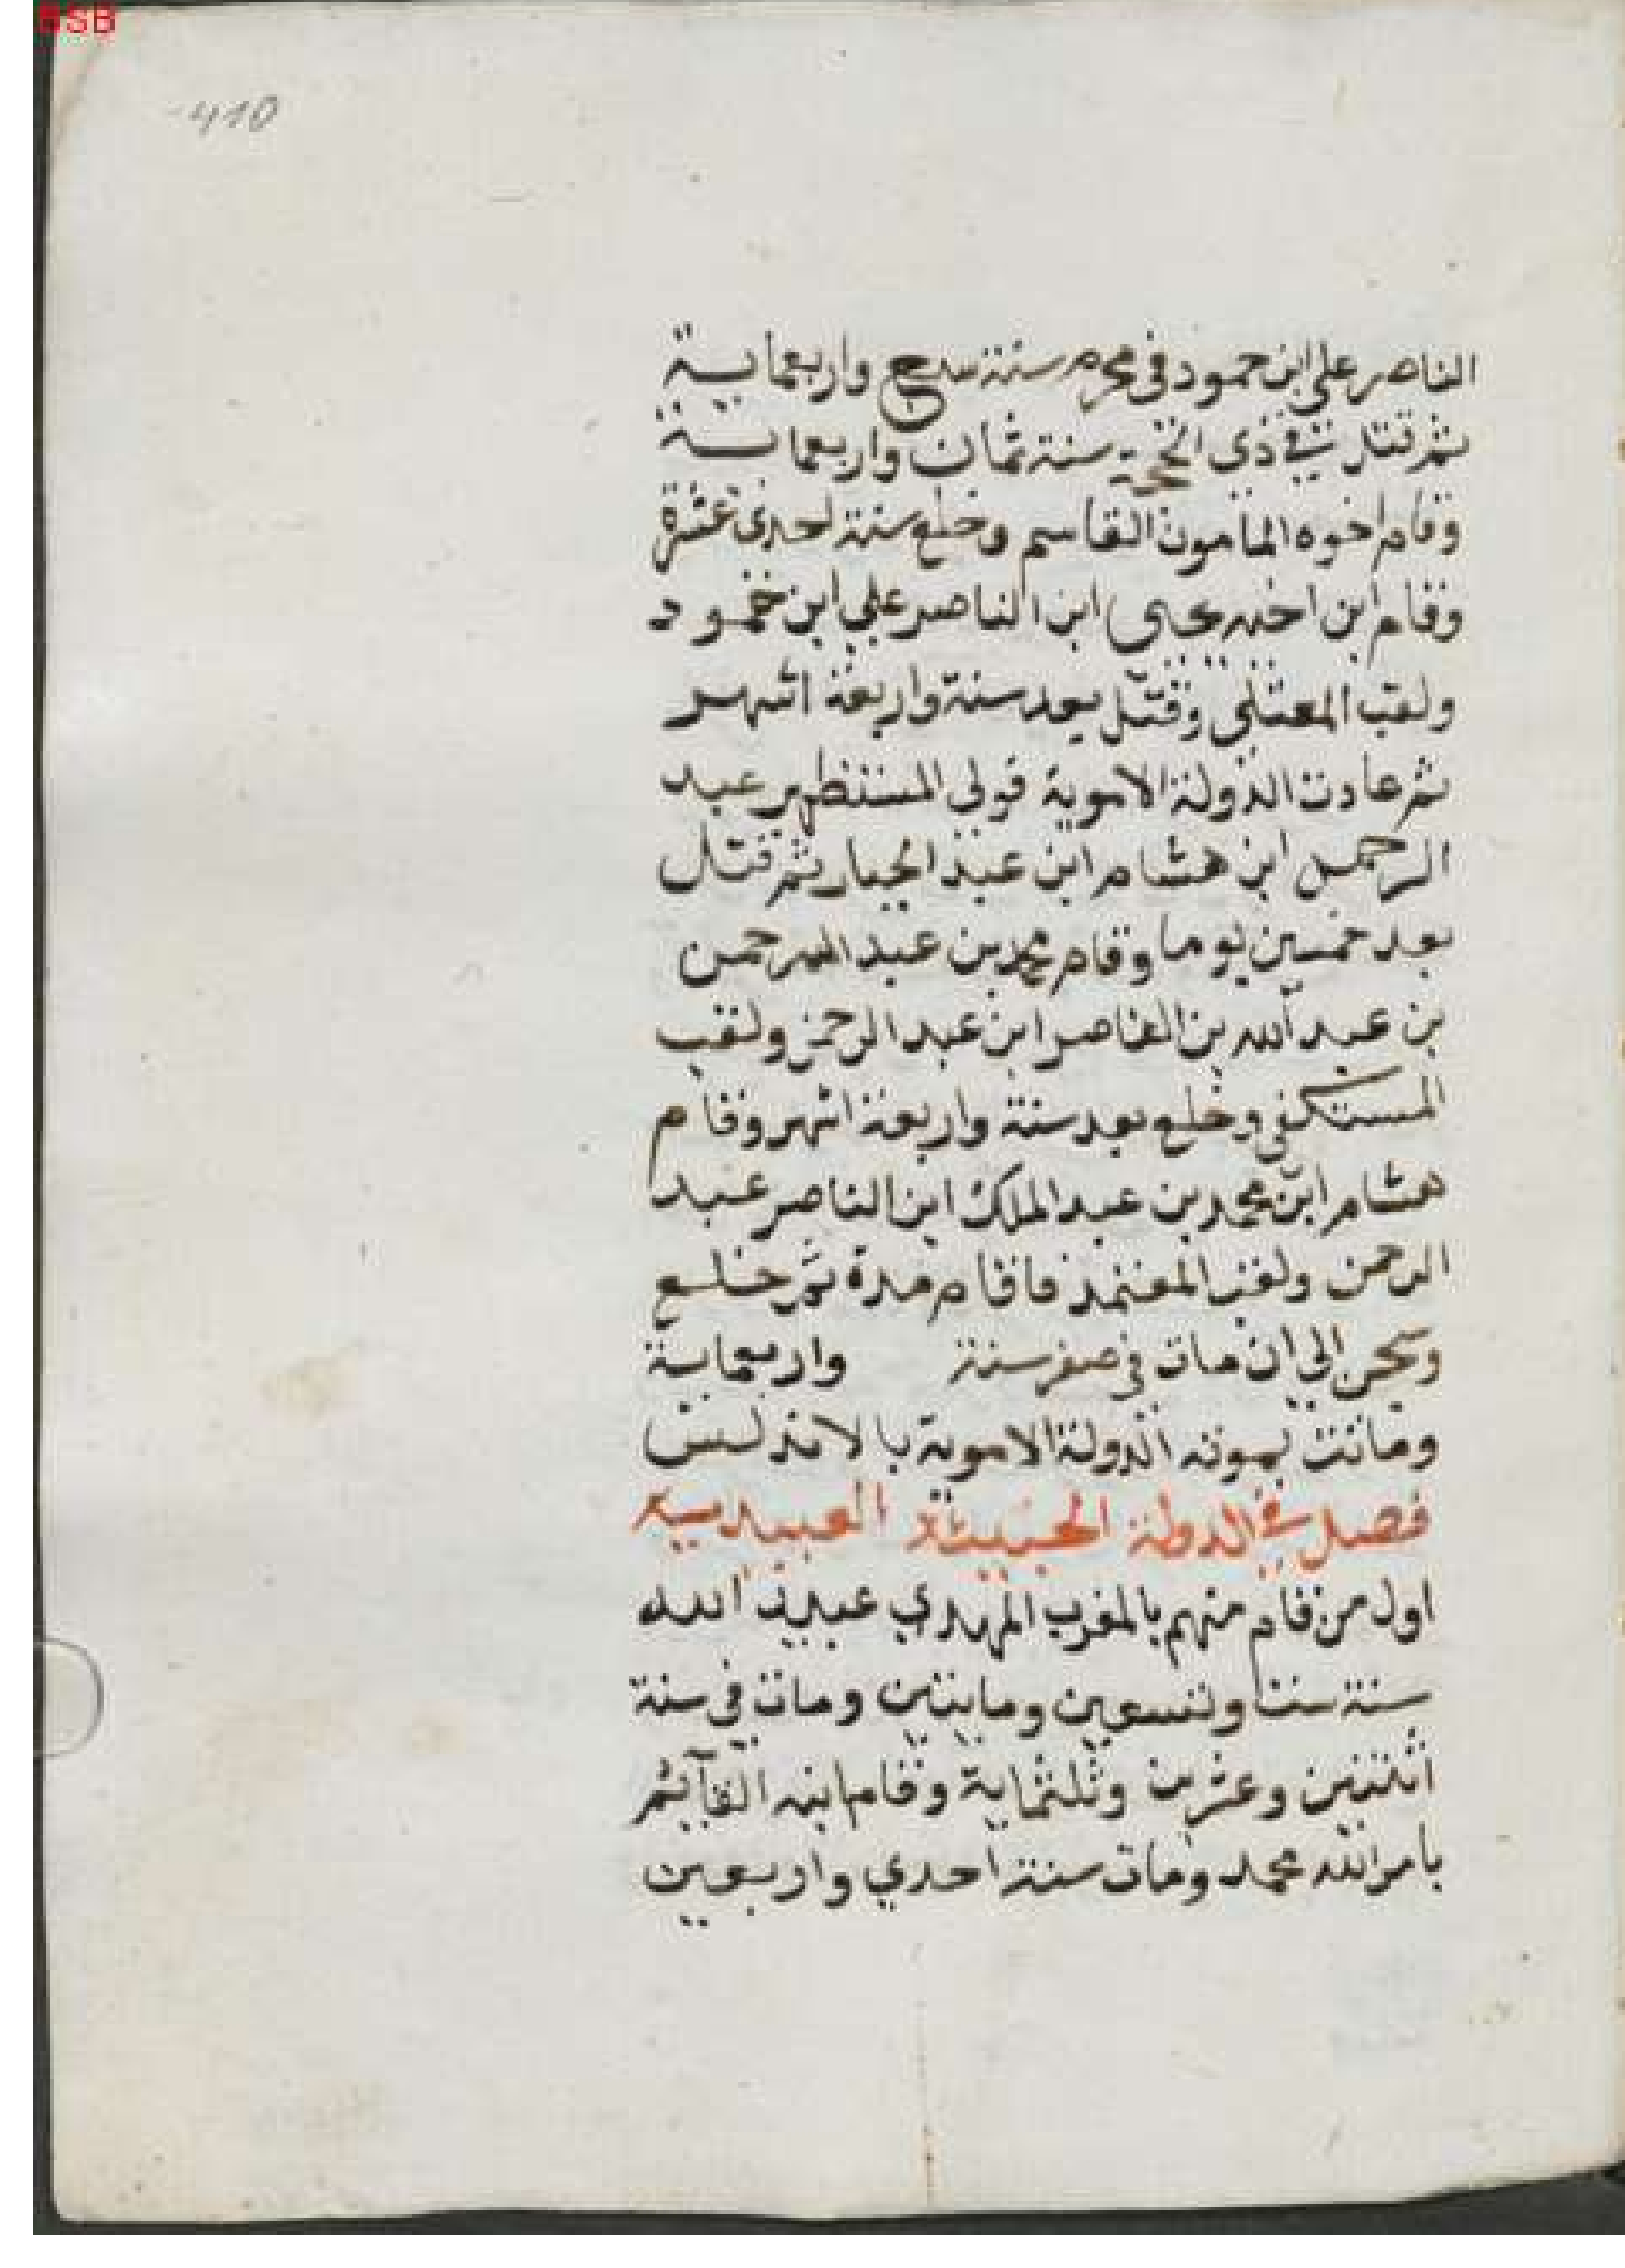 BSB
410
الناصر علي ابن حمود في محرم سنة سبع واربعماية
ثم قتل في ذى الحجة سنة ثمان واربعماية
وقام اخوه المامون القاسم وخلع سنة احدى عشرة
وقام ابن اخيه يحيى ابن الناصر علي ابن حمود
ولقب المعتلي وقتل بعد سنة واربعة اشهر
ثم عادت الدولة الاموية فولى المستظهر عبد
الرحمن ابن هشام ابن عبد الجبار ثم قتل
بعد خمسين يوما وقام محمد بن عبد الرحمن
بن عبد الله بن الناصر ابن عبد الرحمن ولقب
المستكفي وخلع بعد سنة واربعة اشهر وقام
هشام ابن محمد بن عبد الملك ابن الناصر عبد
الرحمن ولقب المعتمد فاقام مدة ثم خلع
وسجن الي ان مات في صفر سنة واربعماية
وماتت بموته الدولة الاموية بالاندلس
فصل في الدولة الخبيثة العبيديية
اول من قام منهم بالمغرب المهدي عبيد الله
سنة ست وتسعين ومايتين ومات في سنة
اثنتين وعشرين وثلثماية وقام ابنه القآئم
بامر الله محمد ومات سنة احدي واربعين